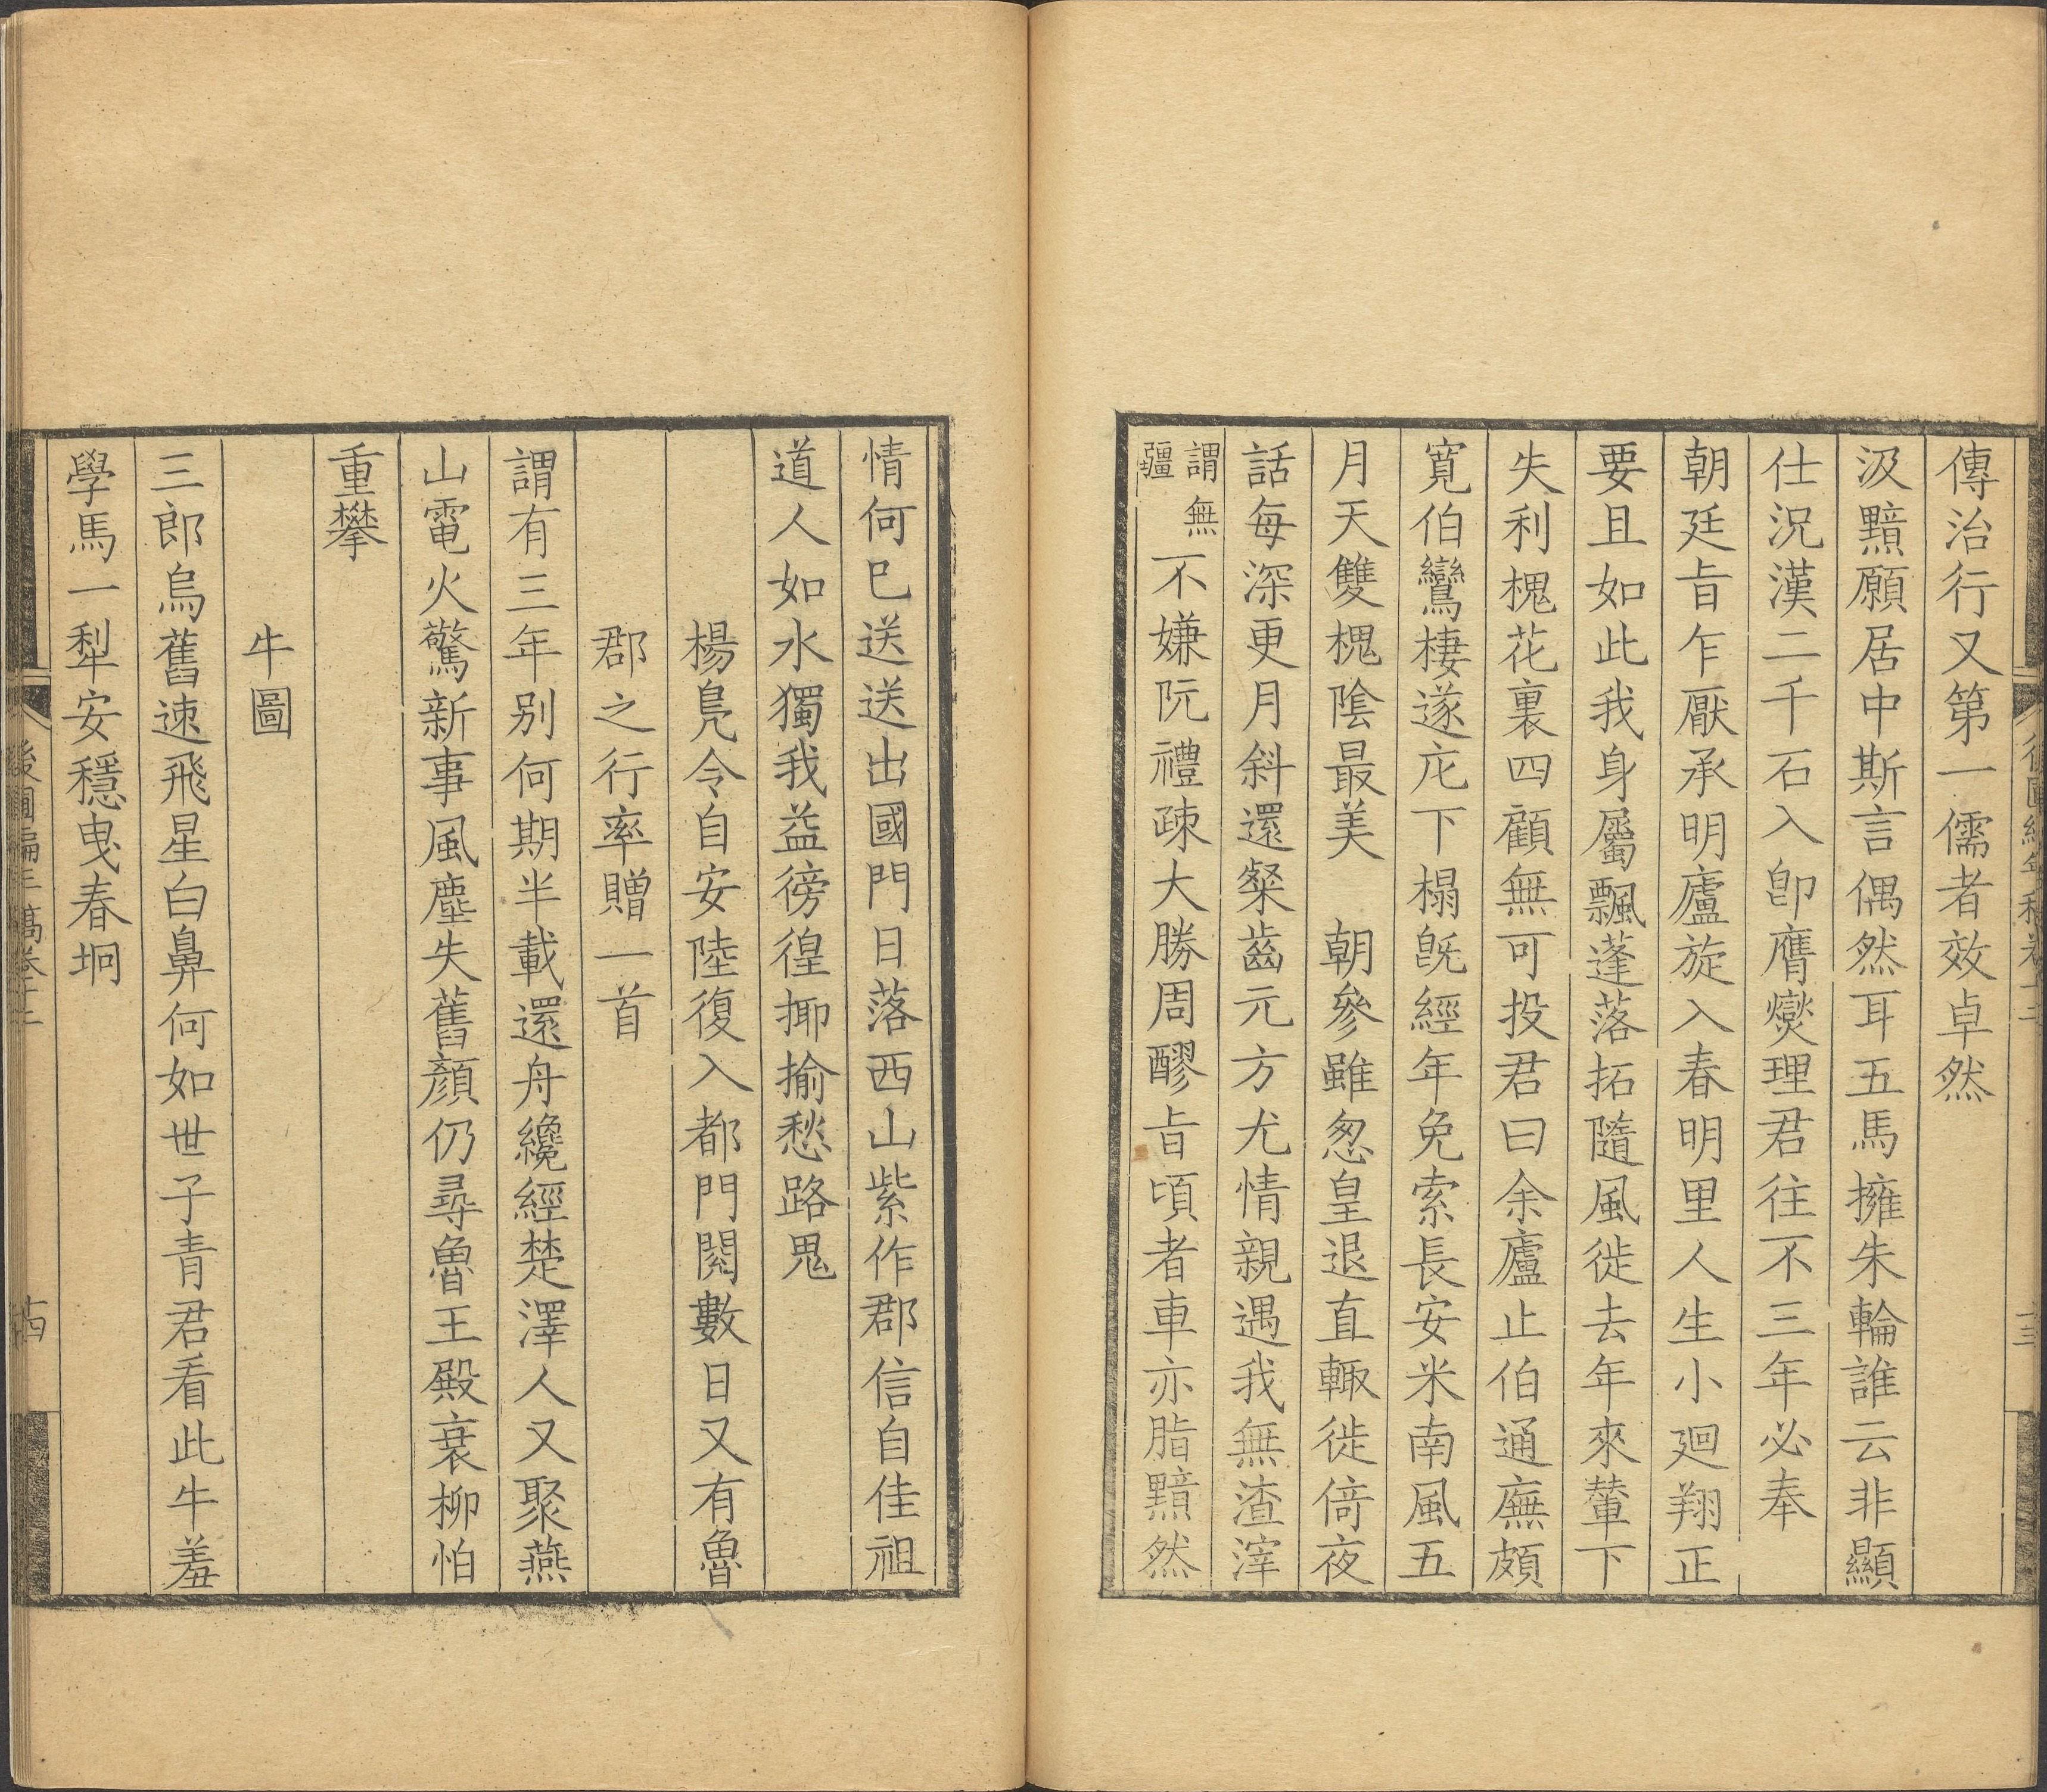 傳治行又第一儒者效卓然
汲黯願居中斯言偶然耳五馬擁朱輪誰云非顯
仕況漢二千石入卽膺爕理君往不三年必奉
朝廷㫖乍厭承明廬旋入春明里人生小廻翔正
要且如此我身屬飄蓬落拓隨風徙去年來輦下
失利槐花裏四顧無可投君曰余廬止伯通廡頗
寬伯鸞棲遂庀下榻旣經年免索長安米南風五
月天雙槐陰最美　朝參雖怱皇退直輙徙倚夜
話每深更月斜還粲齒元方尤情親遇我無渣滓
謂無疆不嫌阮禮疎大勝周醪㫖頃者車亦脂黯然
情何巳送送出國門日落西山紫作郡信自佳祖
道人如水獨我益徬徨揶揄愁路鬼
楊鳧令自安陸復入都門閱數日又有魯
郡之行率贈一首
謂有三年别何期半載還舟纔經楚澤人又聚燕
山電火驚新事風塵失舊顏仍尋魯王殿衰柳怕
重攀
牛圖
三郎烏舊速飛星白鼻何如世子青君看此牛羞
學馬一犁安穩曳春坰
十四